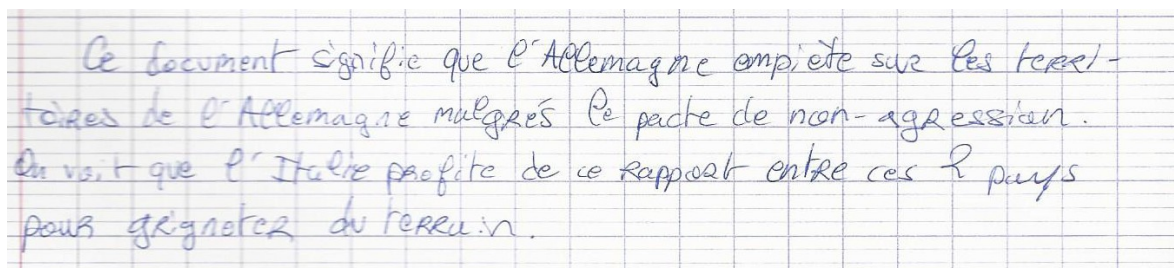 Ce document signifie que l'Allemagne empiète sur les terri-
toires de l'Allemagne malgrés le pacte de non-agression.
On voit que l'Italie profite de ce rapport entre ces 2 pays
pour grignoter du terrain.